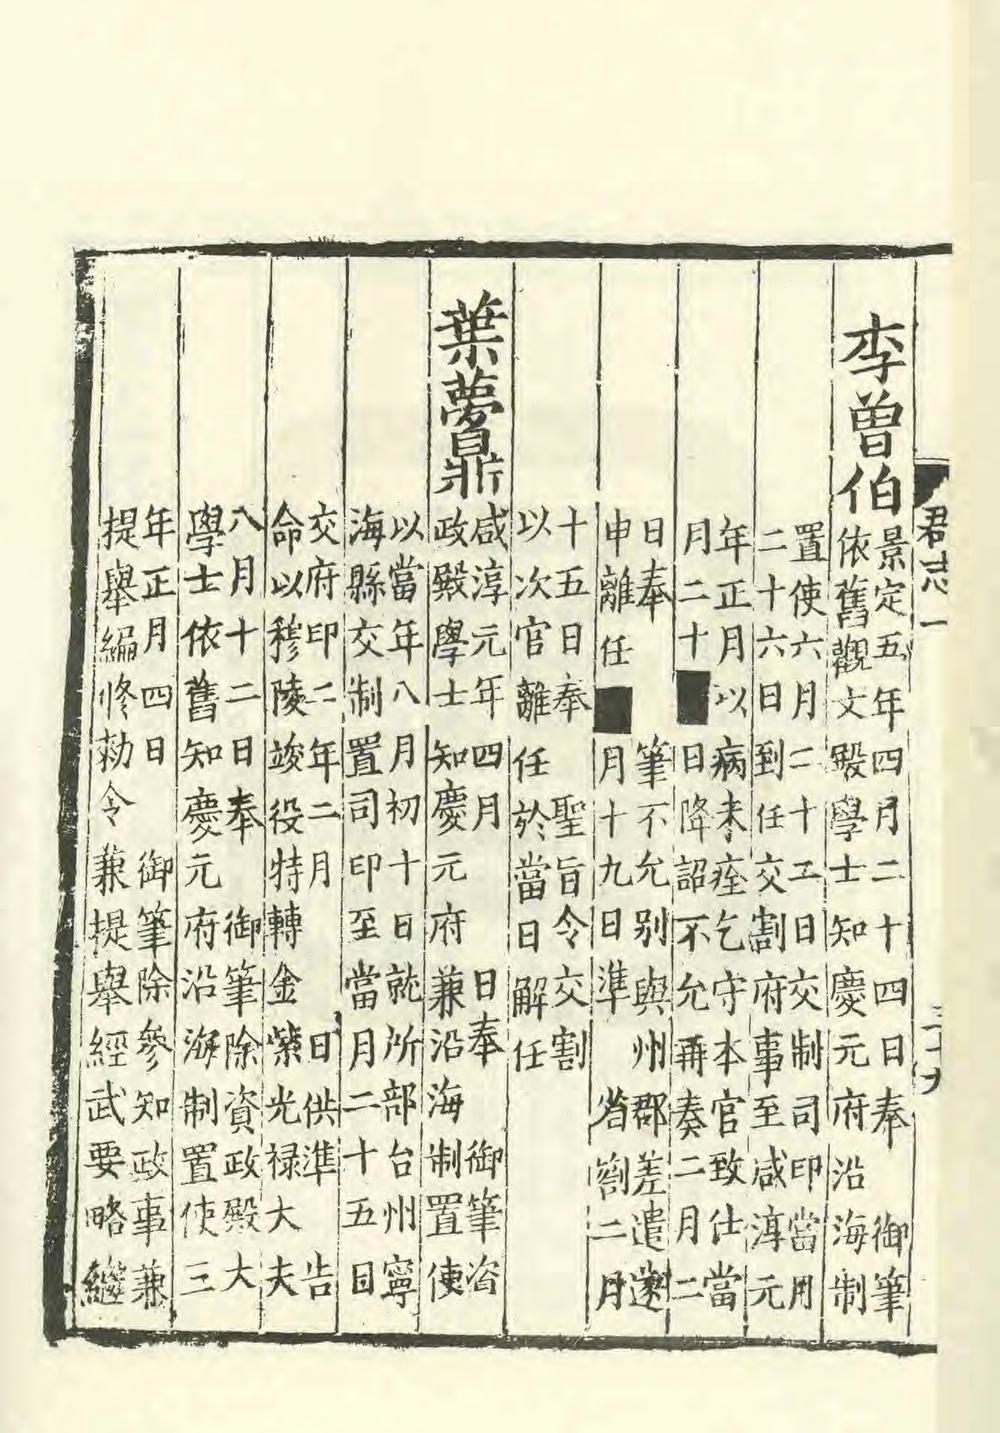 君志一
二十九
李曾伯
景定五年四月二十四日奉 御筆
依舊觀文殿學士知慶元府沿海制
置使六月二十工日交制司印當月
二十六日到任交割府事至咸淳元
年正月以病未痊乞守本官致仕當
月二十■日降詔不允再奏二月二
日奉 筆不允别與州郡差遣遂
申離任■月十九日準 省劄二月
十五日奉 聖旨令交割
以次官離任於當日解任
葉夢鼎
咸淳元年四月 日奉 御筆資
政殿學士知慶元府兼沿海制置使
以當年八月初十日就所部台州寧
海縣交制置司印至當月二十五日
交府印二年二月 日供準 告
命以穆陵竣役特轉金紫光禄大夫
八月十二日奉 御筆除資政殿大
學士依舊知慶元府沿海制置使三
年正月四日 御筆除參知政事兼
提舉編修勑令兼提舉經武要略繼